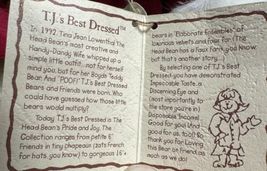 T.J.'s Best Dressed™
In 1992, Tina Jean Lowenthal the
Head Bean's most creative and
Handy-Dandy Wife whipped up a
simple little outfit...not for herself
mind you, but for her Boyds Teddy
Bear. And "POOF!" T.J.'s Best Dressed
Bears and Friends were born. Who
could have guessed how those little
bears would multiply!
Today T.J.'s Best Dressed is The
Head Bean's Pride and Joy. The
Collection ranges from petite 6"
Friends in tiny chapeaux (zats French
for hats you know) to gorgeous 16"
bears in "Elaborate Ensembles" of
luxurious velvets and faux fur (The
Head Bean has a Faux Farm you know
but that's another story...)
By selecting one of T.J.'s Best
Dressed, you have demonstrated
Impeccable Taste, a
Discerning Eye and
(most importantly to
the store you're in)
Disposable Income!
Good for you (and
good for us, too)
thank you for Loving
this Bear or Friend as
much as we do!